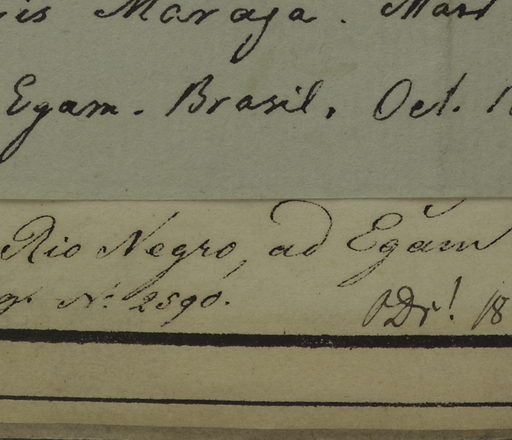 is Maraja. Mart
Egam. Brasil, Oct. 1
Rio Negro, ad Egam
gr. No: 2590. Dr! 18